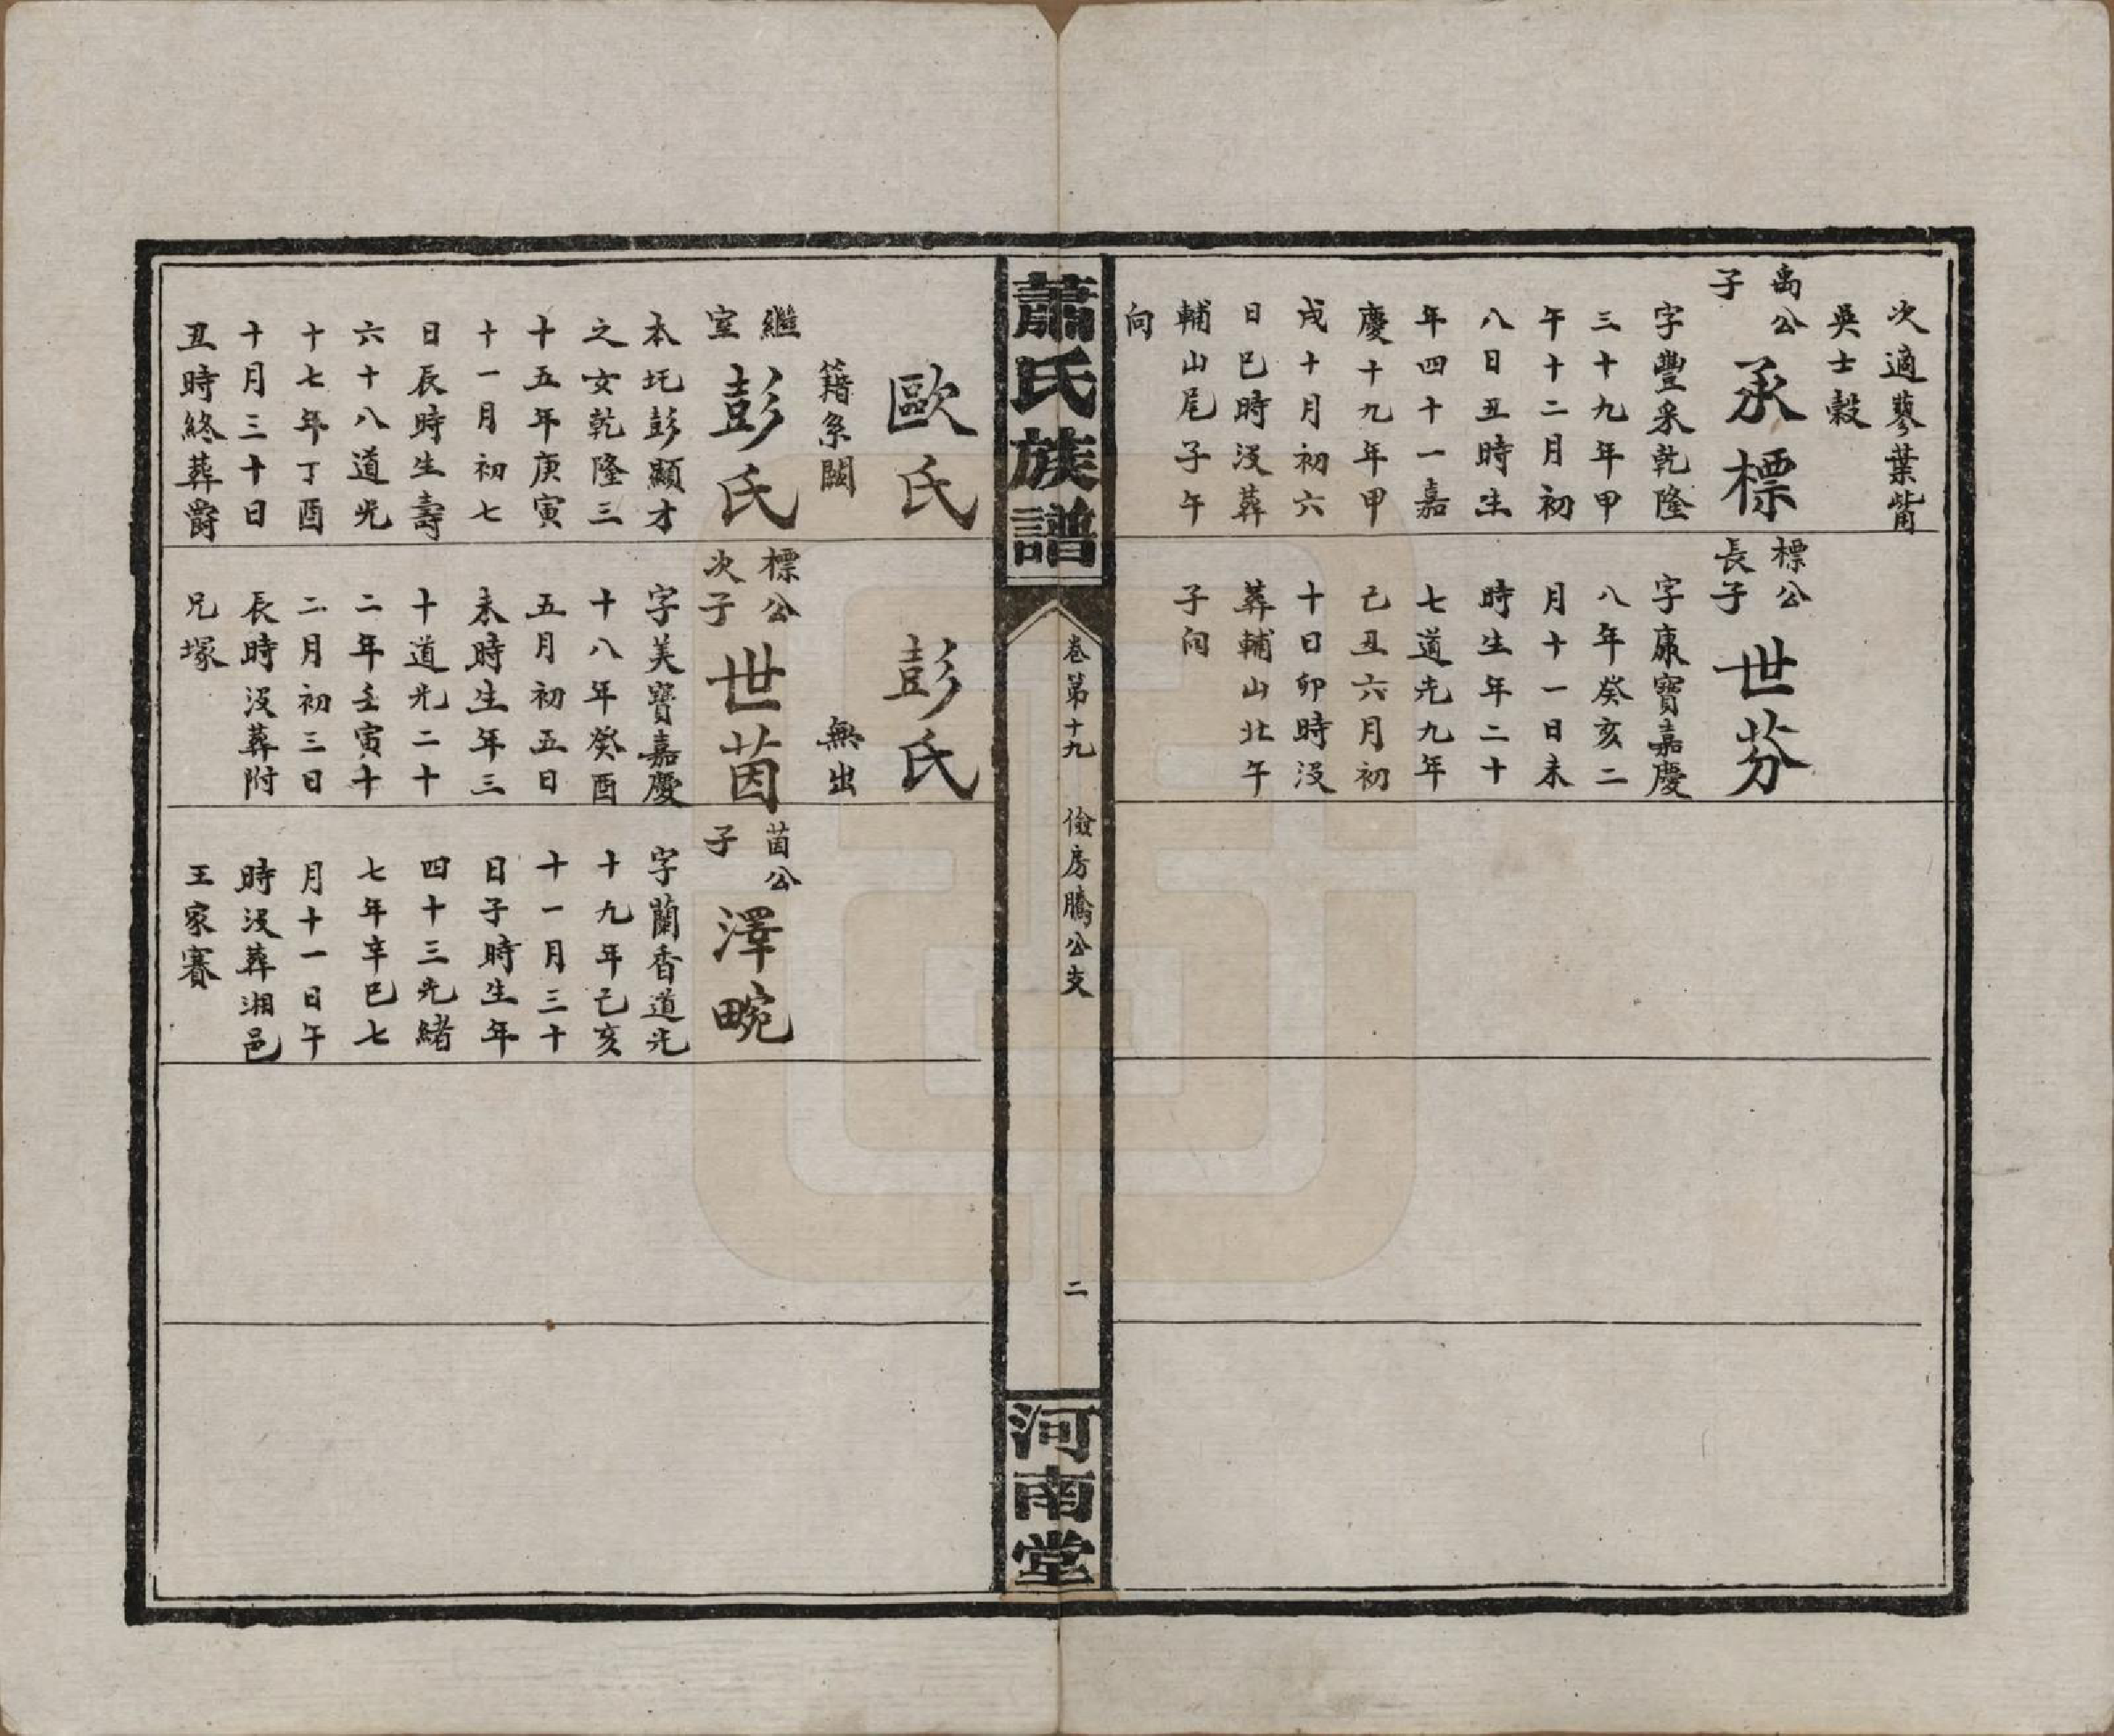 次適蓼葉嘴
吳士穀
禹公
子
承標
字豐采乾隆
三十九年甲
午十二月初
八日丑時生
年四十一嘉
慶十九年甲
戌十月初六
日巳時没葬
輔山尾子午
向
標公
長子
世芬
字康寶嘉慶
八年癸亥二
月十一日未
時生年二十
七道光九年
己丑六月初
十日卯時没
葬輔山北午
子向
蕭氏族譜
卷第十九
儉房騰公支
二
河南堂
歐氏
籍系闕
繼
室
彭氏
本圫彭顯才
之女乾隆三
十五年庚寅
十一月初七
日辰時生壽
六十八道光
十七年丁酉
十月三十日
丑時終葬爵
彭氏
無出
標公
次子
世茵
字美寶嘉慶
十八年癸酉
五月初五日
未時生年三
十道光二十
二年壬寅十
二月初三日
長時没葬附
兄塚
茵公
子
澤畹
字蘭香道光
十九年己亥
十一月三十
日子時生年
四十三光緒
七年辛巳七
月十一日午
時没葬湘邑
王家賽